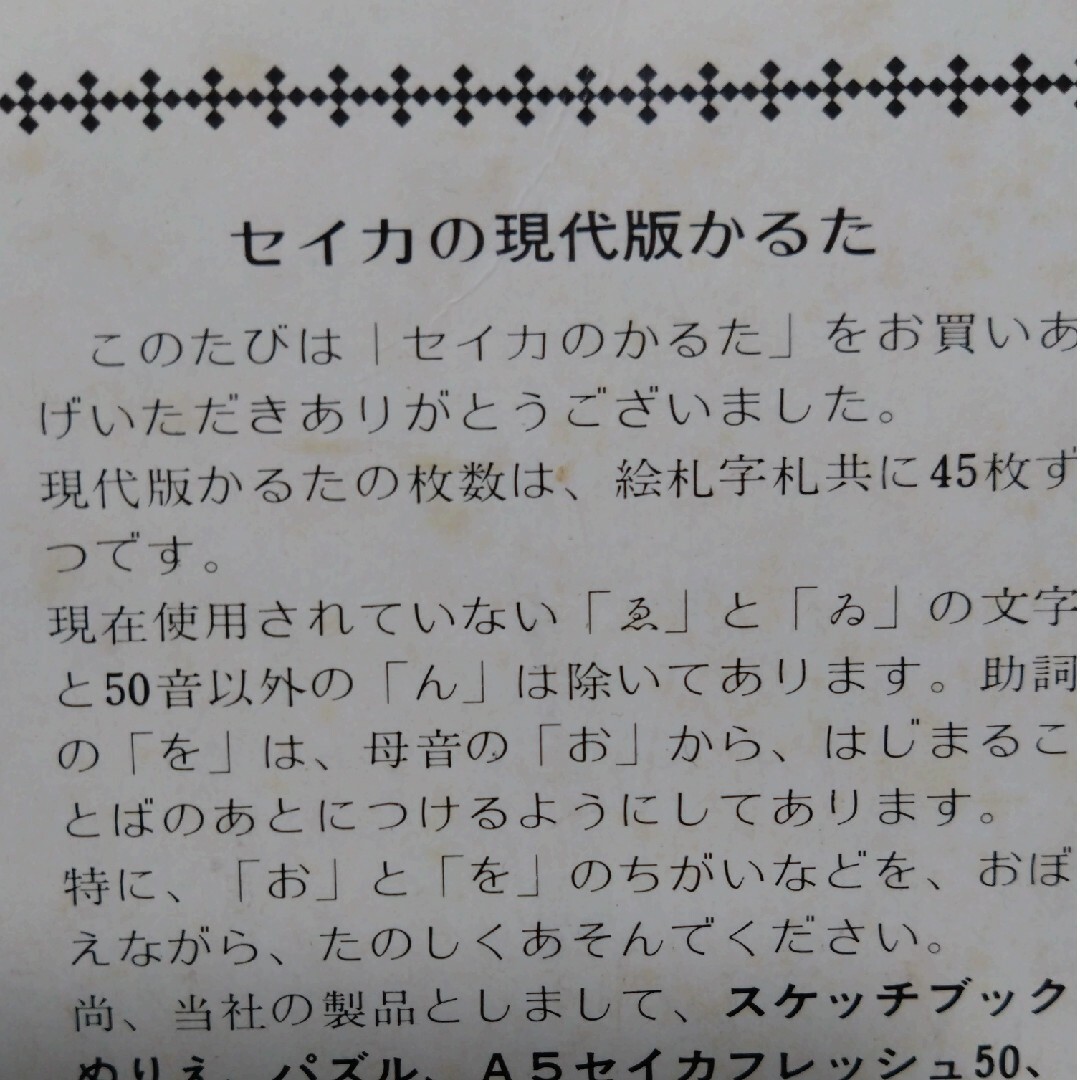 セイカの現代版かるた
このたびは「セイカのかるた」をお買いあ
げいただきありがとうございました。
現代版かるたの枚数は、絵札字札共に45枚ず
つです。
現在使用されていない「ゑ」と「ゐ」の文字
と50音以外の「ん」は除いてあります。助詞
の「を」は、母音の「お」から、はじまるこ
とばのあとにつけるようにしてあります。
特に、「お」と「を」のちがいなどを、おぼ
えながら、たのしくあそんでください。
尚、当社の製品としまして、スケッチブック
ぬりえ、パズル、A5セイカフレッシュ50、